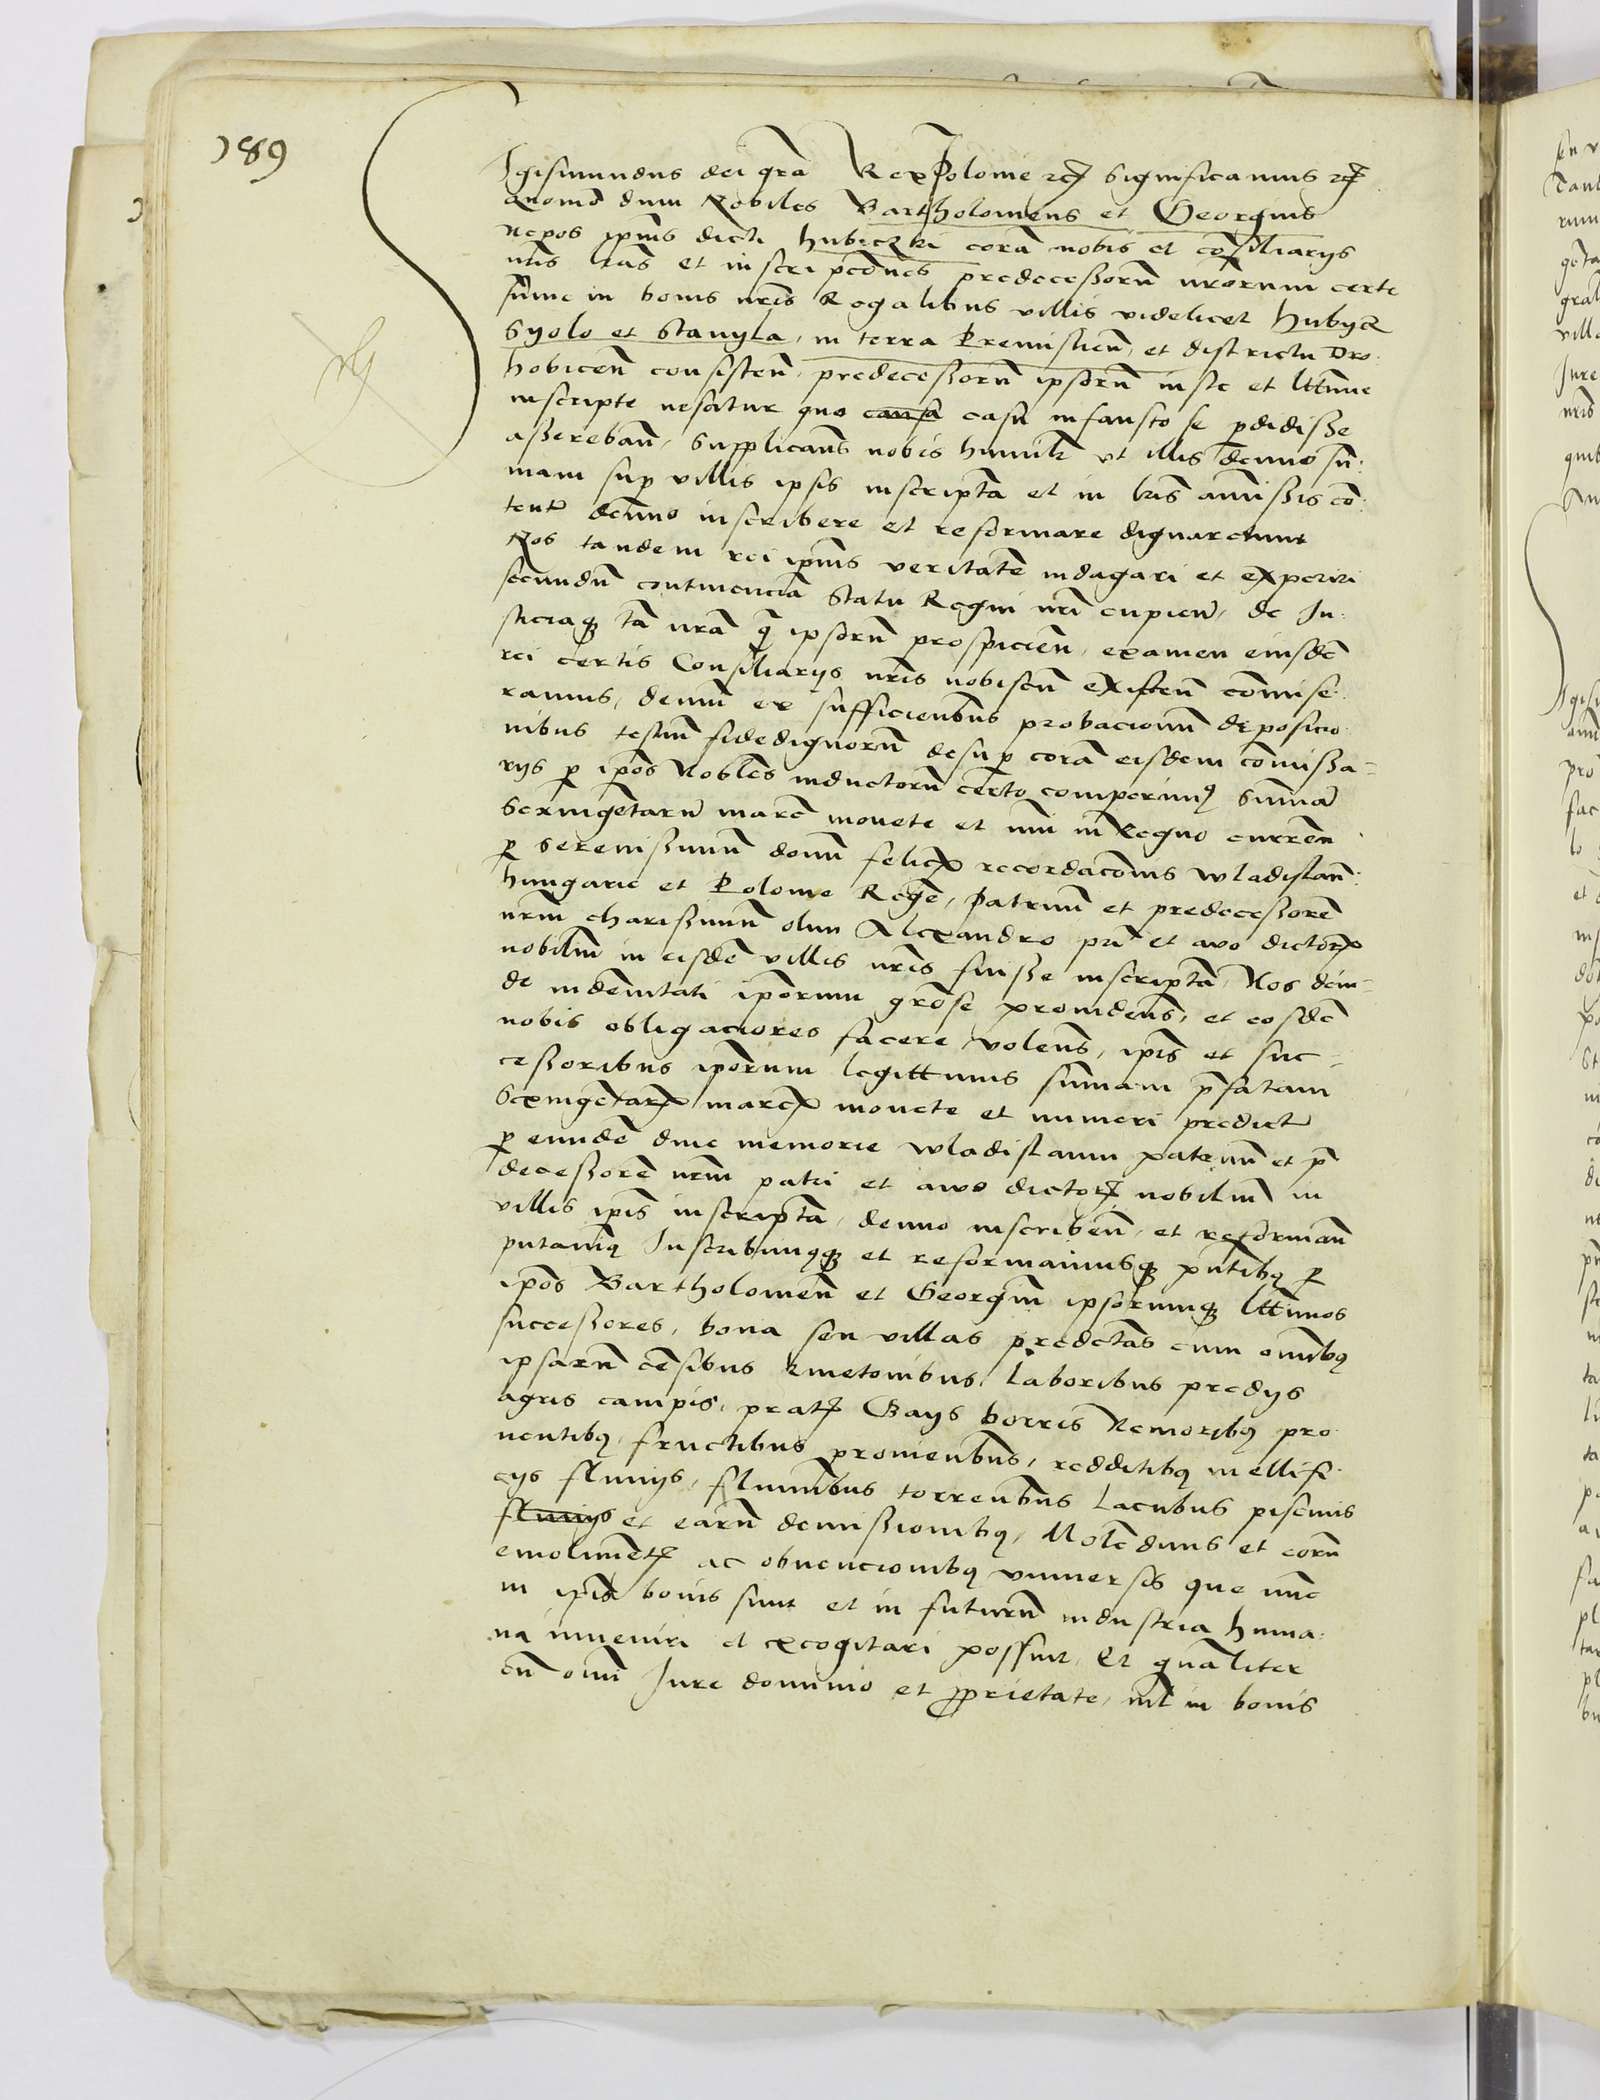 189
Sigismundus dei gra Rex Polonie etc Significamus etc
quomo dum Nobiles Bartholomeus et Georgius
nepos ipius dicti hubiczki cora nobis et cosiliarijs
nris lras et inscripcoes predecessoru nrorum certe
sume in bonis nris Regalibus villis videlicet hubycz
Syolo et Stanyla, in terra Premislien, et districtu Dro:
hobicen consisten, predecessoru ipsoru iuste et lttime
inscripte nescitur quo causa casu infausto se pdidisse
assereban, Supplicans nobis humilr vt illis denuo su:
mam sup villis ipsis inscripta et in lris amissis co:
tent denuo inscribere et reformare dignaremur
Nos tandem rei ipius veritate indagari et experiri
secundu continencia Statu Regni nri cupien, de Ju:
sticiaq ta nra q ipsoru prospicien, examen eiusde
rei certis Consiliarijs nris nobiscu existen comise:
ramus, demu ex sufficientibus probacionu deposicio
nibus testiu fidedignoru desup cora eisdem comissa=
rijs p ipos Nobiles inductoru certo comperimus Suma
Sexingetaru marc monete et nui in Regno curren
p Serenissimu donu felicis recordacois Wladislau:
hungarie et Polonie Rege, Patruu et predecessore
nrm charissimu olim Alexandro pri et auo dictorum
nobiliu in eisde villis nris fuisse inscripta, Nos dein=
de indenitati iporum grose prouidens, et eosde
nobis obligaciores facere volens, ipis et suc=
cessoribus iporum legittimis sumam pfatam
Sexingetarum marcarum monete et numeri predict
p eunde diue memorie Wladislaum patruu et p
decessore nrm patri et auo dictorum nobiliu in
villis ipis inscripta, denuo inscriben, et reforman
putauimus Inscribimusq et reformamusq pntibus p
ipos Bartholomeu et Georgiu ipsorumq lttimos
successores, bona seu villas predctas cum omibus
ipsaru cesibus kmetonibus, laboribus predijs
agris campis, pratis Gays borris Nemoribus pro
uentibus, fructibus prouentibus, redditibus mellifi:
cijs fluuijs, fluminibus torrentibus lacubus piscinis
fluuijs et earu demissionibus, Molendinis et eoru
emolimetis ac obuencionibus vniuersis que nuc
in ipis bonis sunt et in futuru industria huma:
na inueniri et excogitari possunt, Et qualiter
cu omi Jure dominio et proprietate, nil in bonis